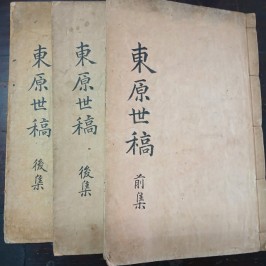 東原世稿
前集
東原世稿
後集
東原世稿
後集